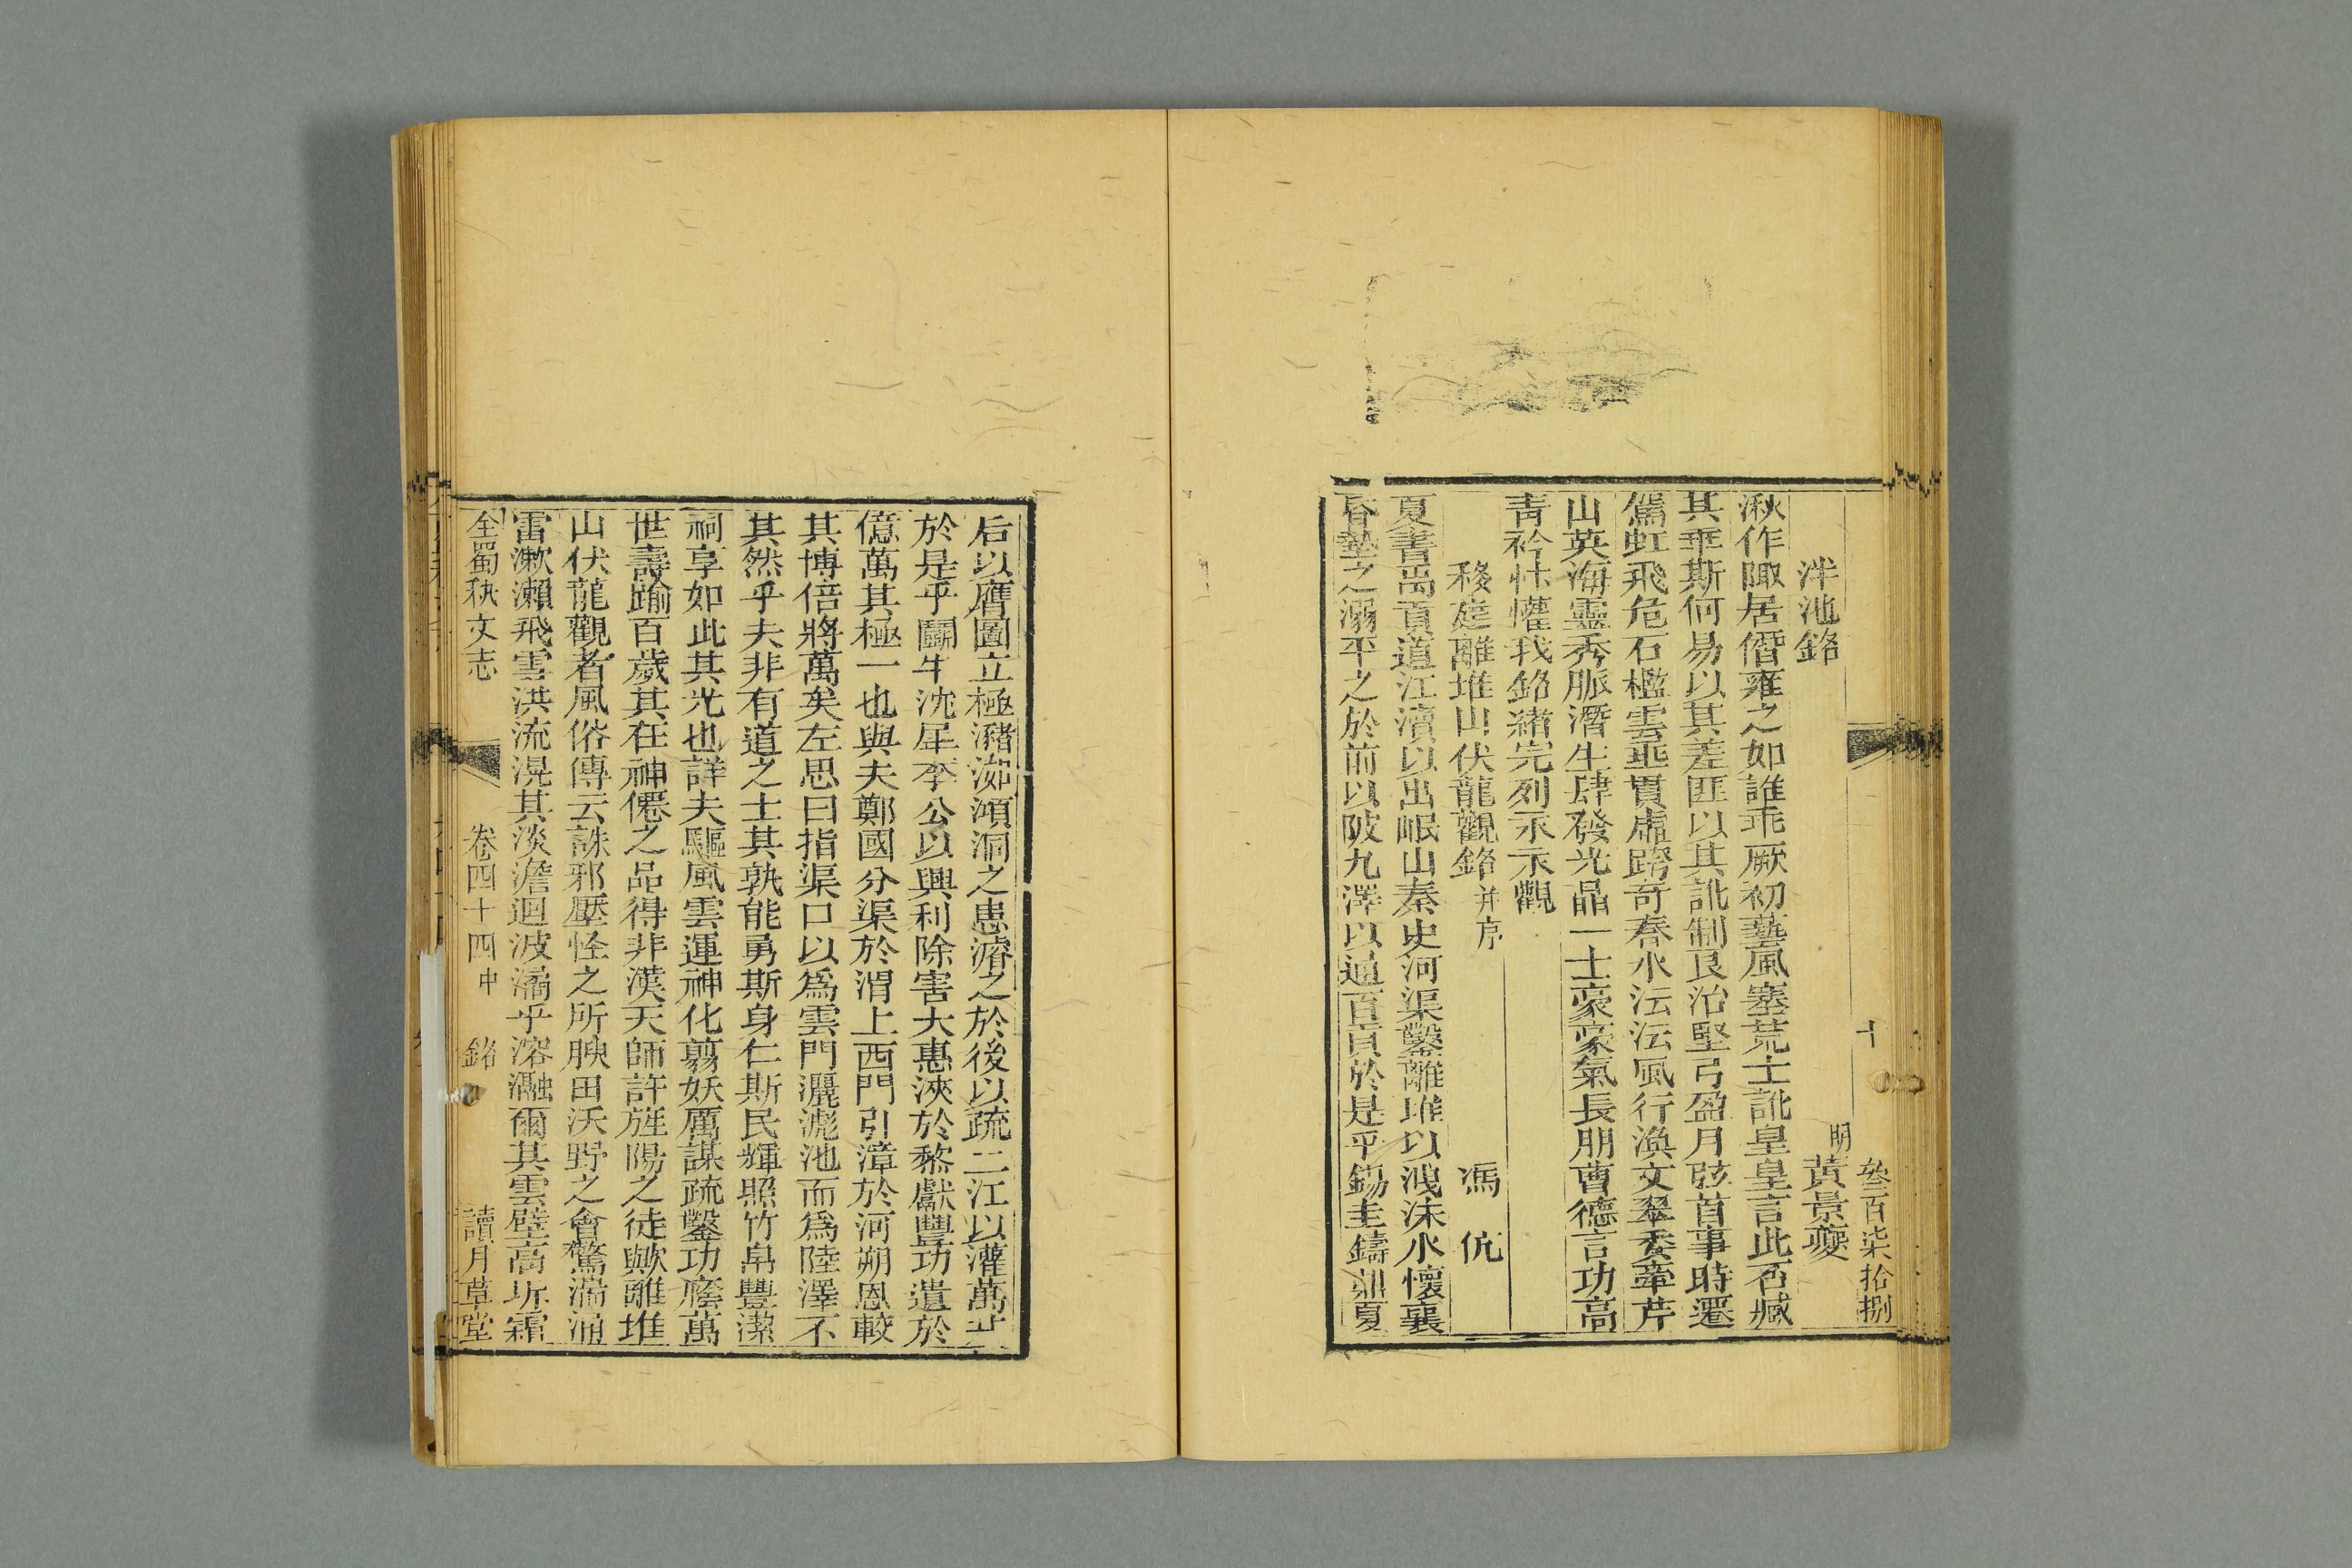 十　叄百柒拾捌
泮池銘　明黃景夔
湫作陬居僭雍之如誰乖厥初藝風塞荒士訛皇皇言此否臧
其乖斯何易以其差匪以其訛制良治堅弓盈月弦首事時遷
駕虹飛危石檻雲乖貫虛跨奇春水沄沄風行渙文翠委牽芹
山英海靈秀脈潛生肆發光晶一士豪豪氣長朋曹德言功高
青衿怯懽我銘緒完列示示觀
移建離堆山伏龍觀銘并序　馮伉
夏書禹貢道江瀆以出岷山秦史河渠鑿離堆以洩沬水懷襄
昏墊之溺平之於前以陂九澤以通百貢於是乎錫圭鑄鼎夏
后以膺圖立極瀦洳澒洞之患濬之於後以疏二江以灌萬
於是乎鬬牛沈犀李公以興利除害大惠浹於黎獻豐功遺於
億萬其極一也與夫鄭國分渠於渭上西門引漳於河朔恩較
其博倍將萬矣左思曰指渠口以爲雲門灑滮池而爲陸澤不
其然乎夫非有道之士其孰能勇斯身仁斯民輝照竹帛豐潔
祠享如此其光也詳夫驅風雲運神化翦妖厲謀疏鑿功癊萬
世壽踰百歲其在神僊之品得非漢天師許旌陽之徒歟離堆
山伏龍觀者風俗傳云誅邪壓怪之所腴田沃野之會驚湍涌
雷漱瀨飛雪洪流滉其淡澹迴波潏乎溶瀜爾其雲壁高圻霜
全蜀秇文志　卷四十四中　銘　讀月草堂